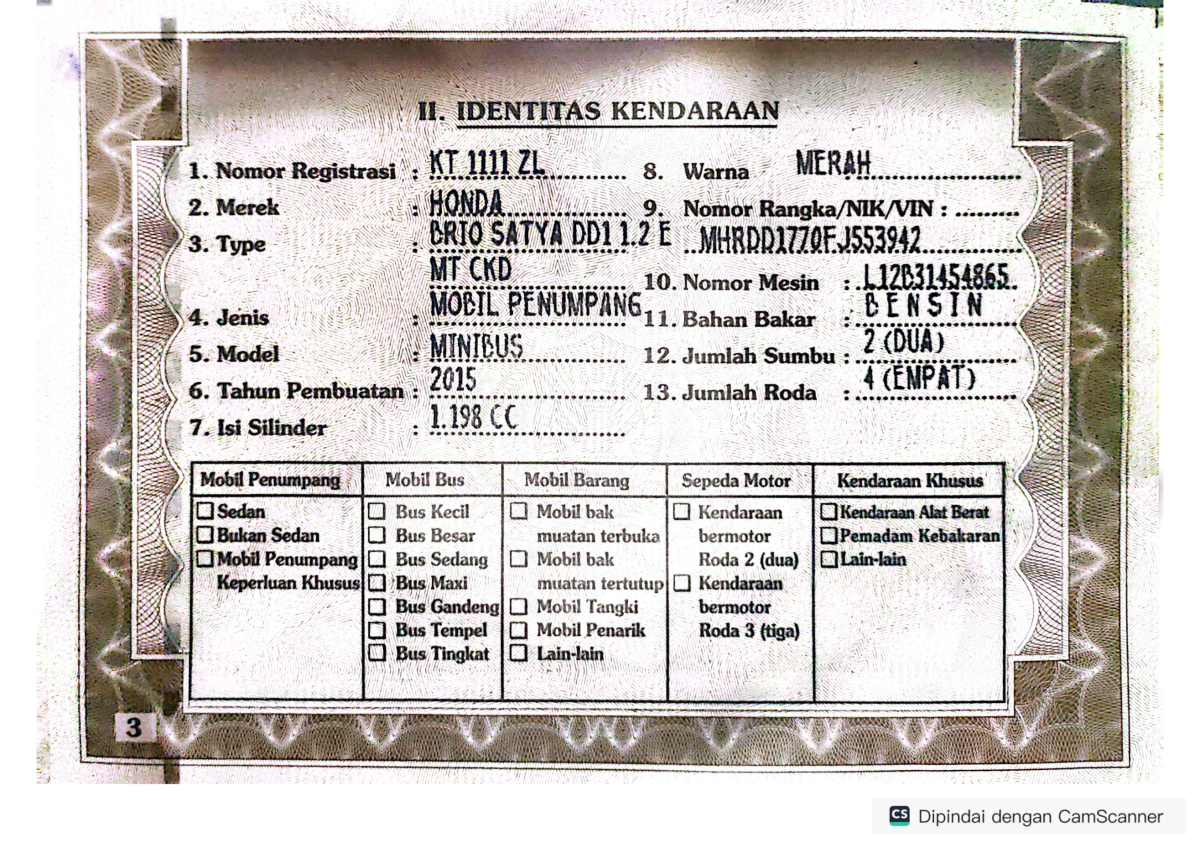 II. IDENTITAS KENDARAAN
1. Nomor Registrasi : KT 1111 ZL
2. Merek : HONDA
3. Type : BRIO SATYA DD1 1.2 E
MT CKD
4. Jenis : MOBIL PENUMPANG
5. Model : MINIBUS
6. Tahun Pembuatan : 2015
7. Isi Silinder : 1.198 CC
8. Warna MERAH
9. Nomor Rangka/NIK/VIN :
MHRDD1770FJ553942
10. Nomor Mesin : L12B31454865
11. Bahan Bakar : BENSIN
12. Jumlah Sumbu : 2 (DUA)
13. Jumlah Roda : 4 (EMPAT)
Mobil Penumpang
Sedan
Bukan Sedan
Mobil Penumpang
Keperluan Khusus
Mobil Bus
Bus Kecil
Bus Besar
Bus Sedang
Bus Maxi
Bus Gandeng
Bus Tempel
Bus Tingkat
Mobil Barang
Mobil bak
muatan terbuka
Mobil bak
muatan tertutup
Mobil Tangki
Mobil Penarik
Lain-lain
Sepeda Motor
Kendaraan
bermotor
Roda 2 (dua)
Kendaraan
bermotor
Roda 3 (tiga)
Kendaraan Khusus
Kendaraan Alat Berat
Pemadam Kebakaran
Lain-lain
3
CS Dipindai dengan CamScanner